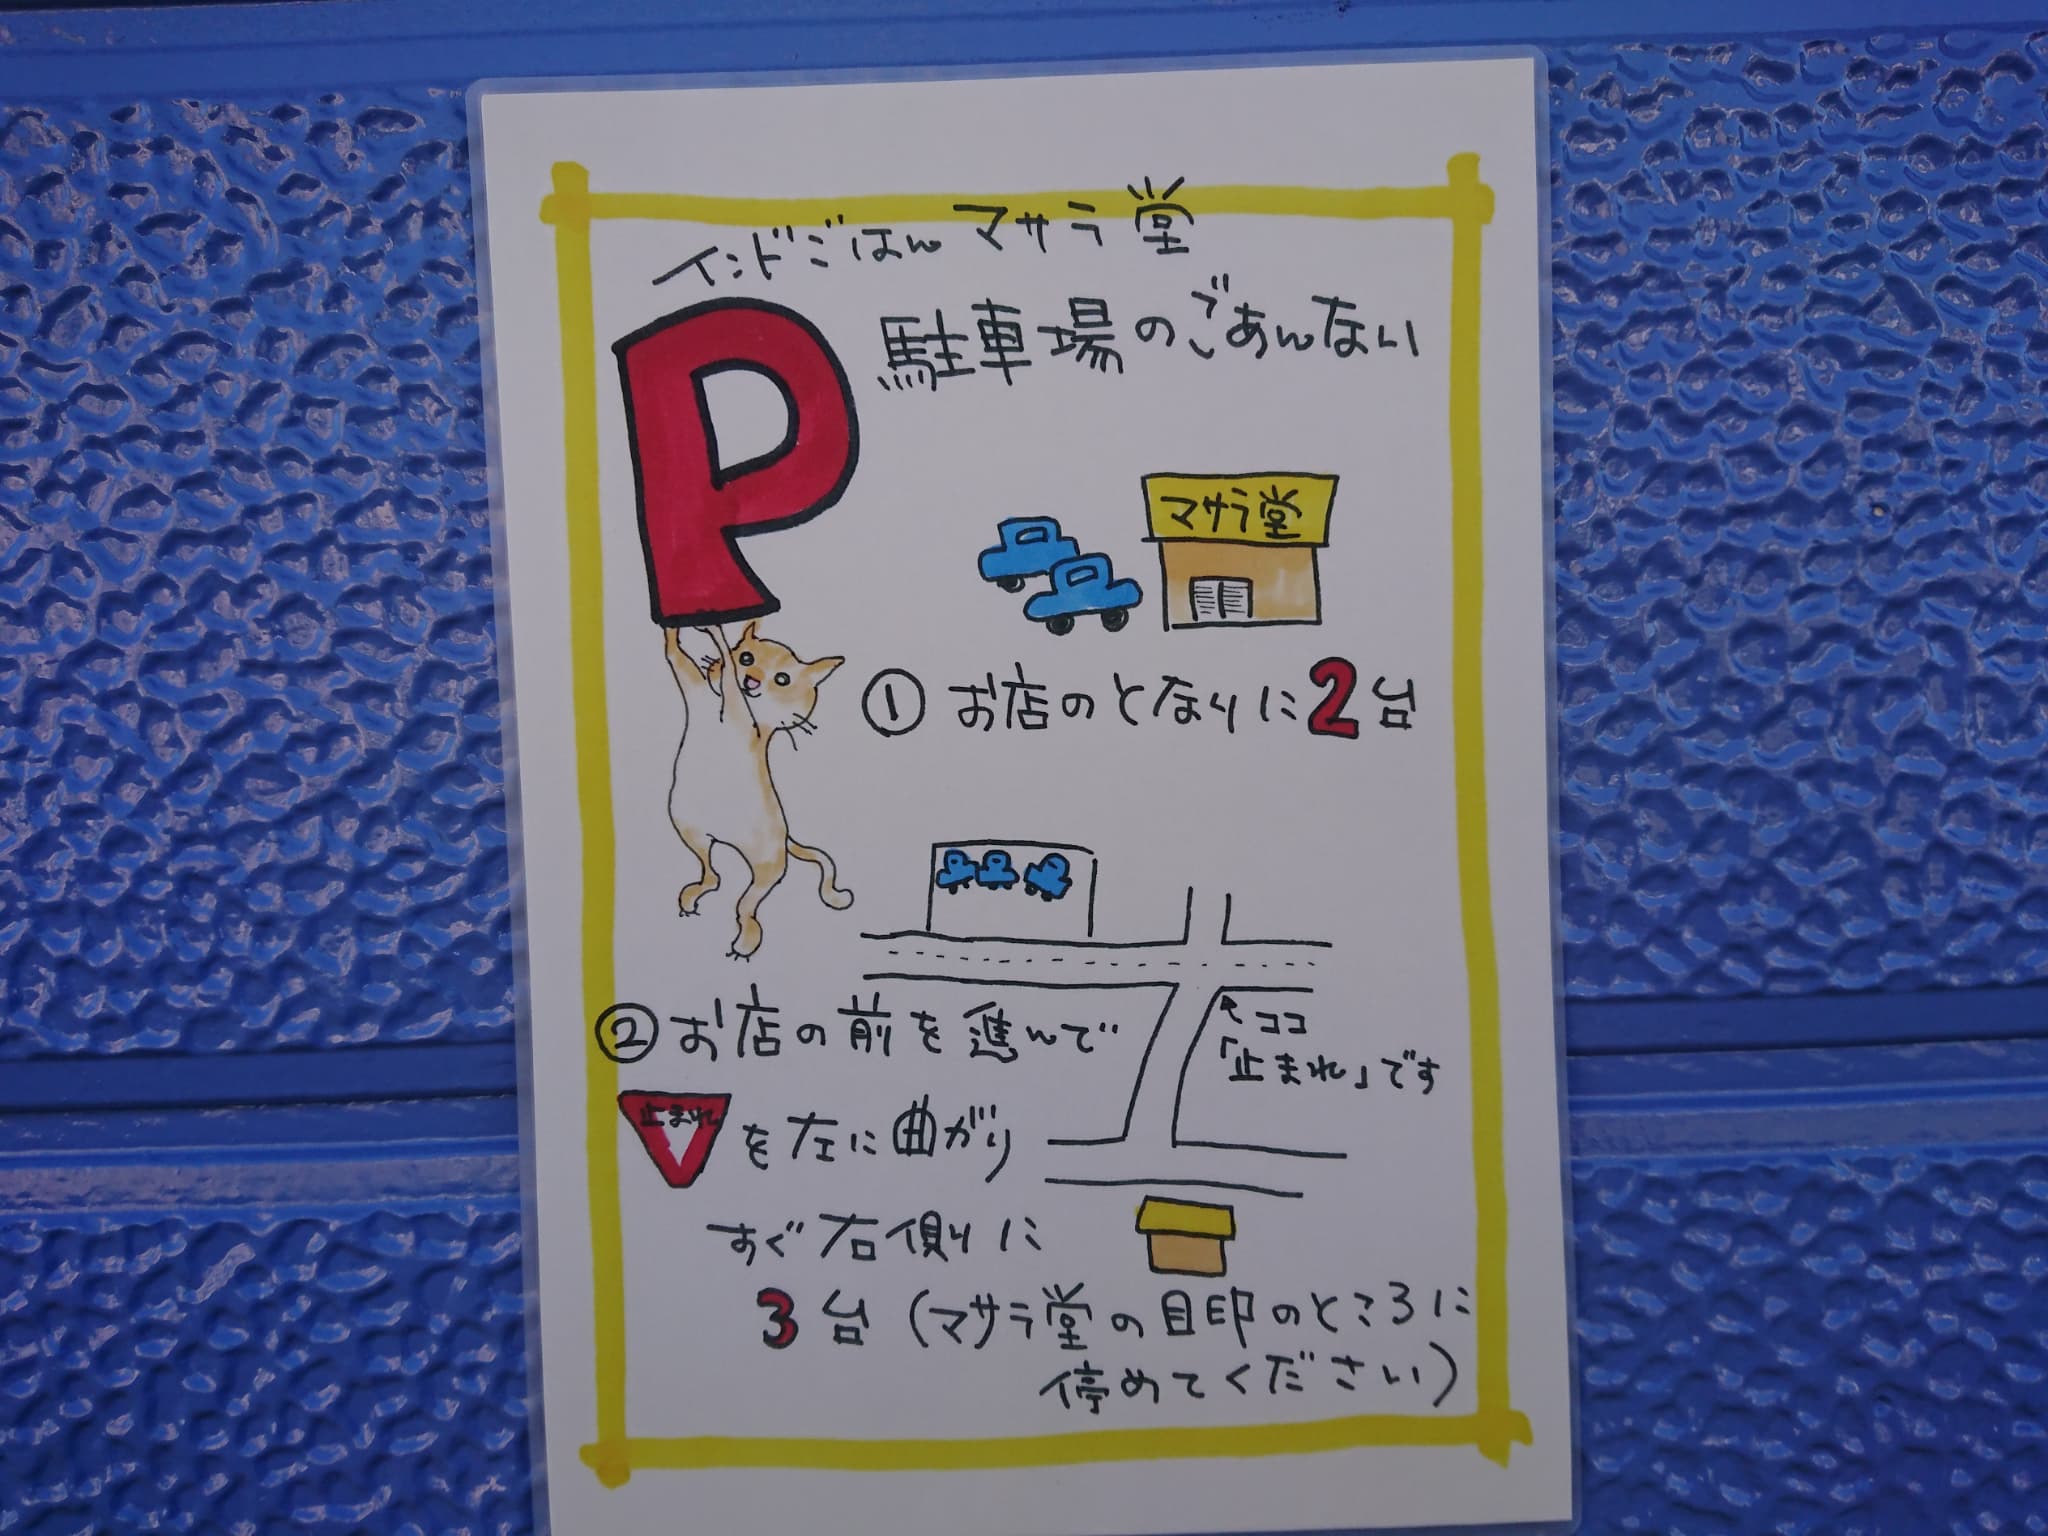 インドごはん マサラ堂
P
駐車場のごあんない
マサラ堂
① お店のとなりに2台
② お店の前を進んで
ココ
「止まれ」です
止まれ を左に曲がり
すぐ右側に
3台(マサラ堂の目印のところに
停めてください)